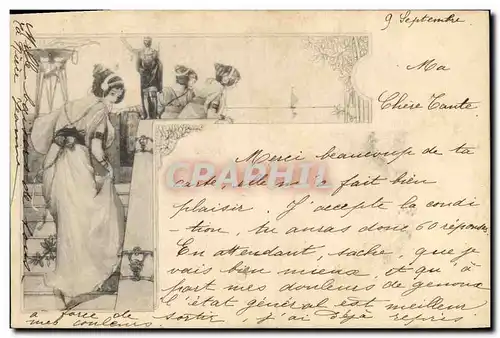 9 Septembre
Ma
Chère Tante
Merci beaucoup de ta
carte, elle m'a fait bien
plaisir. J'accepte la condi
-tion, tu auras donc 60 réponses
En attendant, sache, que je
vais bien mieux, et qu'à
part mes douleurs de genoux
l'état général est meilleur
à force de sortir, j'ai déjà repris
mes couleurs.
CPAPHIL